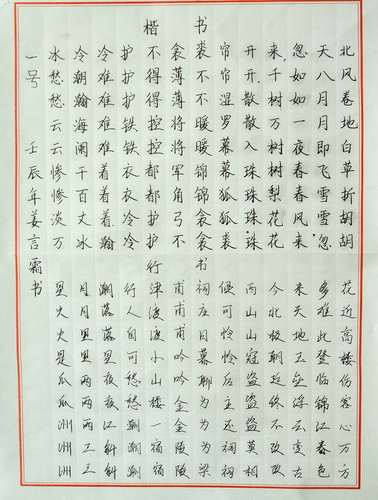 楷书
北风卷地白草折胡胡
天八月月即飞雪雪忽
忽如如一夜春春风来
来,千树万树树梨花花
开开,散散入珠珠珠
帘帘湿罗幕幕狐狐裘
裘不不暖锦锦衾
衾薄薄将将军角弓不
不得得控控都都护
护护难铁铁衣衣冷冷
冷难难着着着瀚
冷瀚瀚海阑干百丈冰
冰愁愁云云惨惨淡万
一号 壬辰年姜言霜书
行书
花近高楼伤客心万方
多难此登临锦江春色
来天地玉垒浮云变古
今北极朝朝终不改改
西山山寇盗盗莫相
便可怜怜后主还祠祠
祠庙日暮聊为为梁
甫甫吟吟金金陵
津渡渡小山楼一宿宿
行人自可愁愁潮潮
潮落落夜夜江斜斜
月月里里两两三三
星火火是瓜瓜洲洲洲